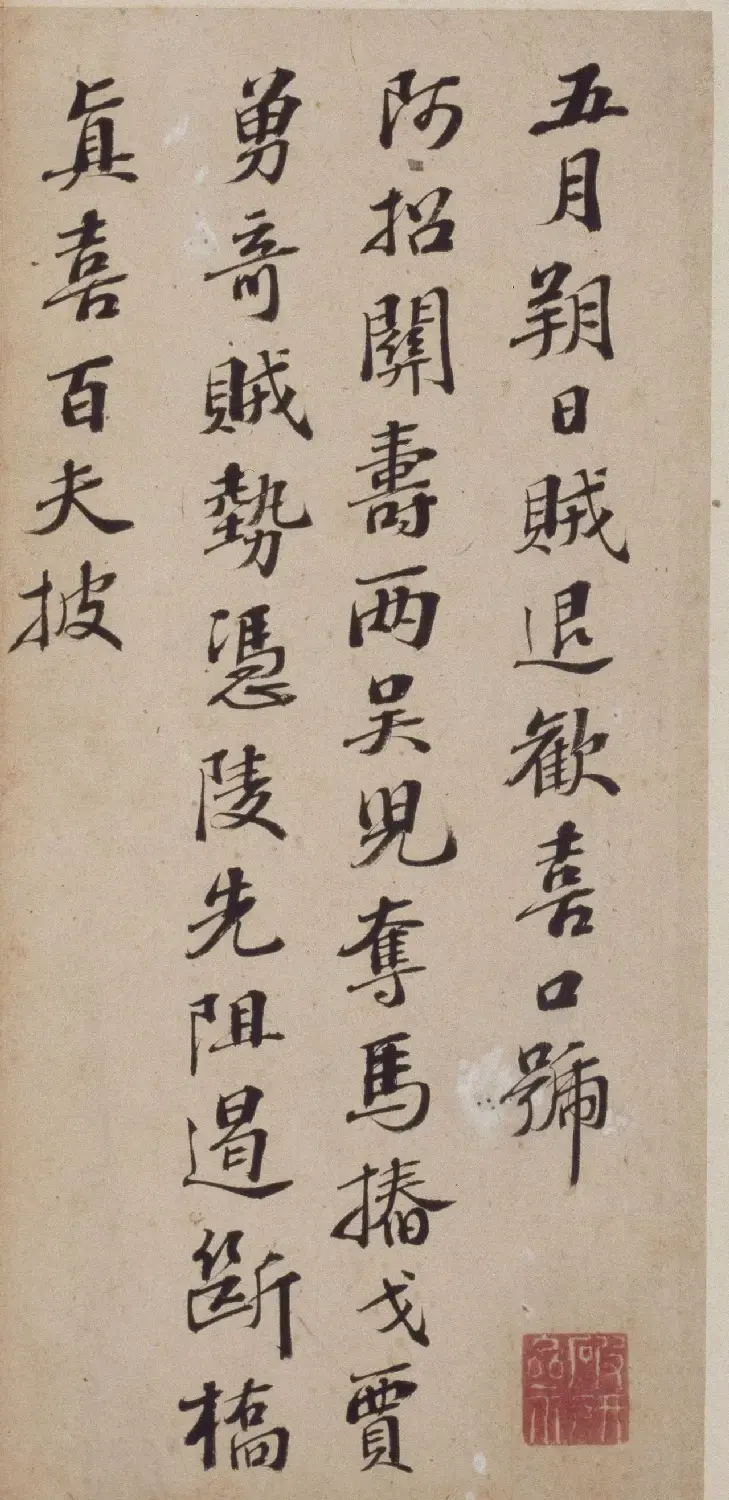 五月朔日賊退歡喜口號
阿招關壽兩吴兒奪馬摏戈賈
勇奇賊勢憑陵先阻遏斷橋
真喜百夫披